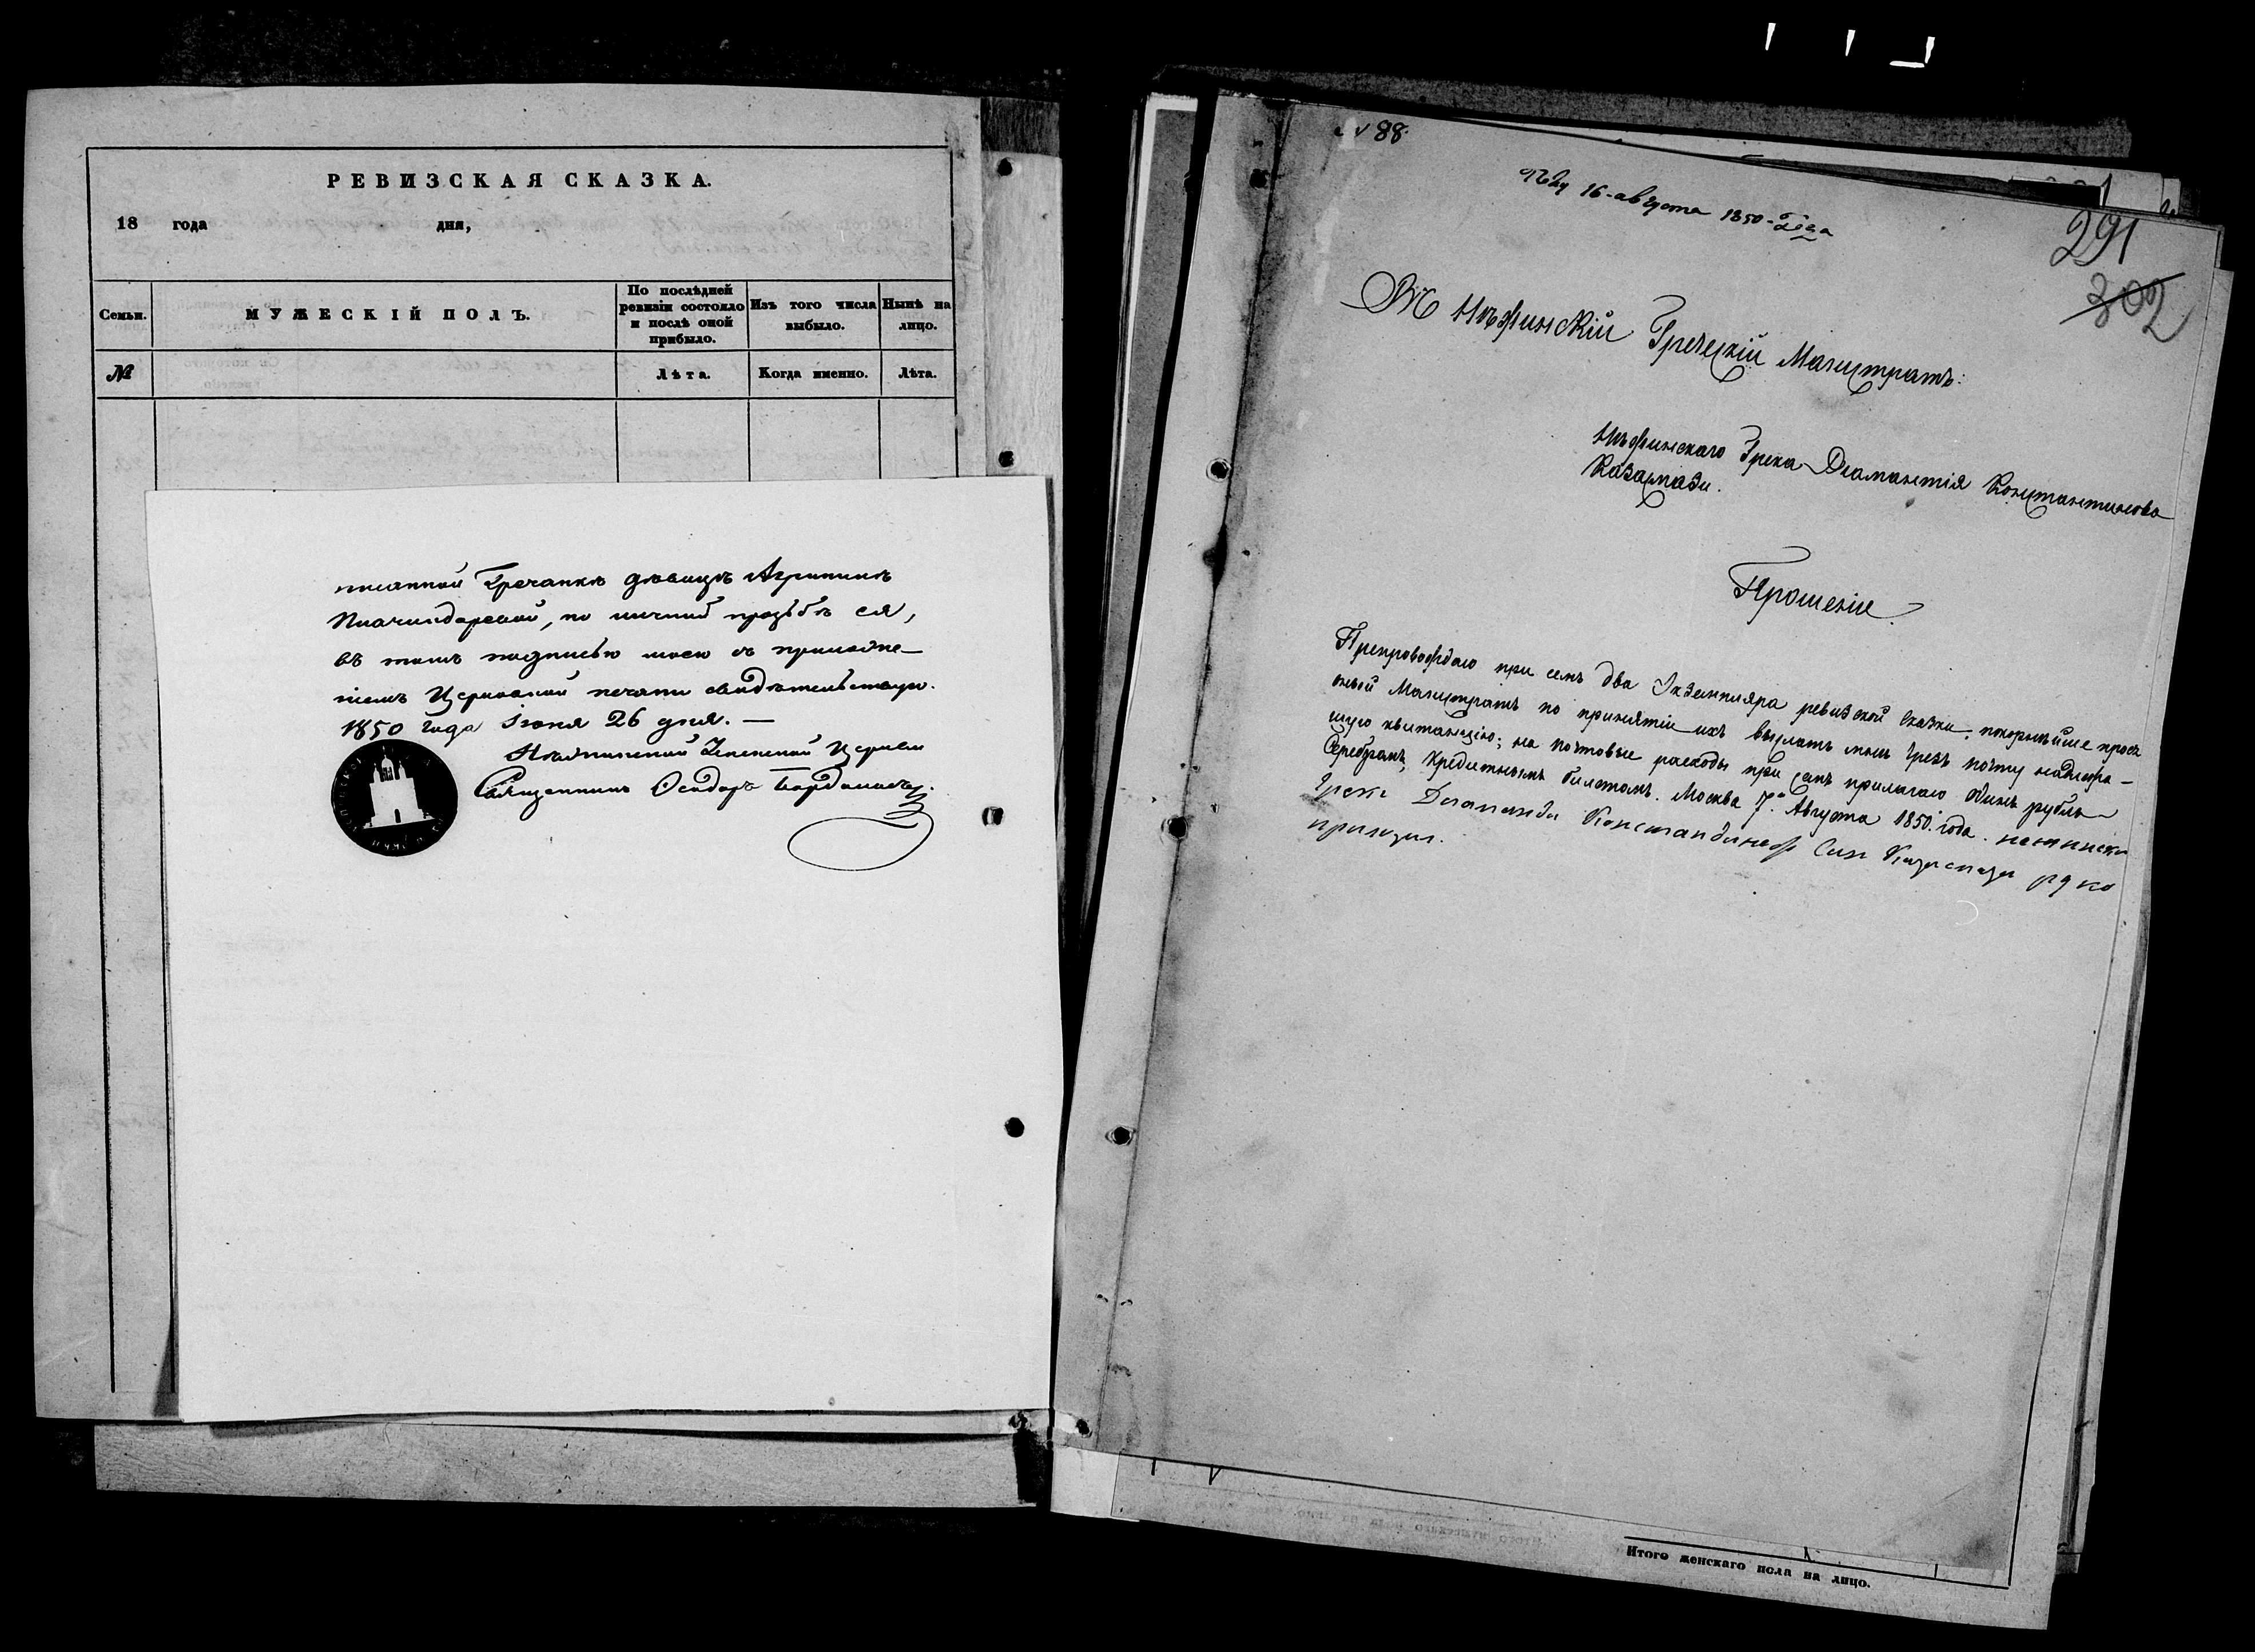 РЕВИЗСКАЯ СКАЗКА.
18 года дня,
Семьи.
МУЖЕСКІЙ ПОЛЪ.
По послѣдней ревизіи состояло и послѣ оной прибыло.
Изъ того числа выбыло.
Нынѣ на лицо.
№
Лѣта.
Когда именно.
Лѣта.
писанной Гречанкѣ дѣвицѣ Агрипинѣ
по личной прозьбѣ ея,
въ томъ подписью моею съ приложе-
ніемъ Церковной печати свидѣтельствую.
1850 года Іюня 26 дня. —
Успенской Церкви
Священникъ Ѳеодоръ
№ 88.
16-августа 1850-Года
291
302
Въ Нѣжинскій Греческій Магистратъ:
Нѣжинскаго Грека Діамантія Константинова
Казамази.
Прошеніе
Препровождаю при семъ два Экземпляра ревизской Сказки, покорнѣйше прося
оный Магистратъ по принятіи ихъ выслать мнѣ чрезъ почту надлежа-
щую квитанцію; на почтовые расходы при семъ прилагаю одинъ рубль
Серебромъ, Кредитнымъ билетомъ. Москва 7го Августа 1850. года.
Грекъ Константиновъ Сынъ
приложил.
Итого женскаго пола на лицо.